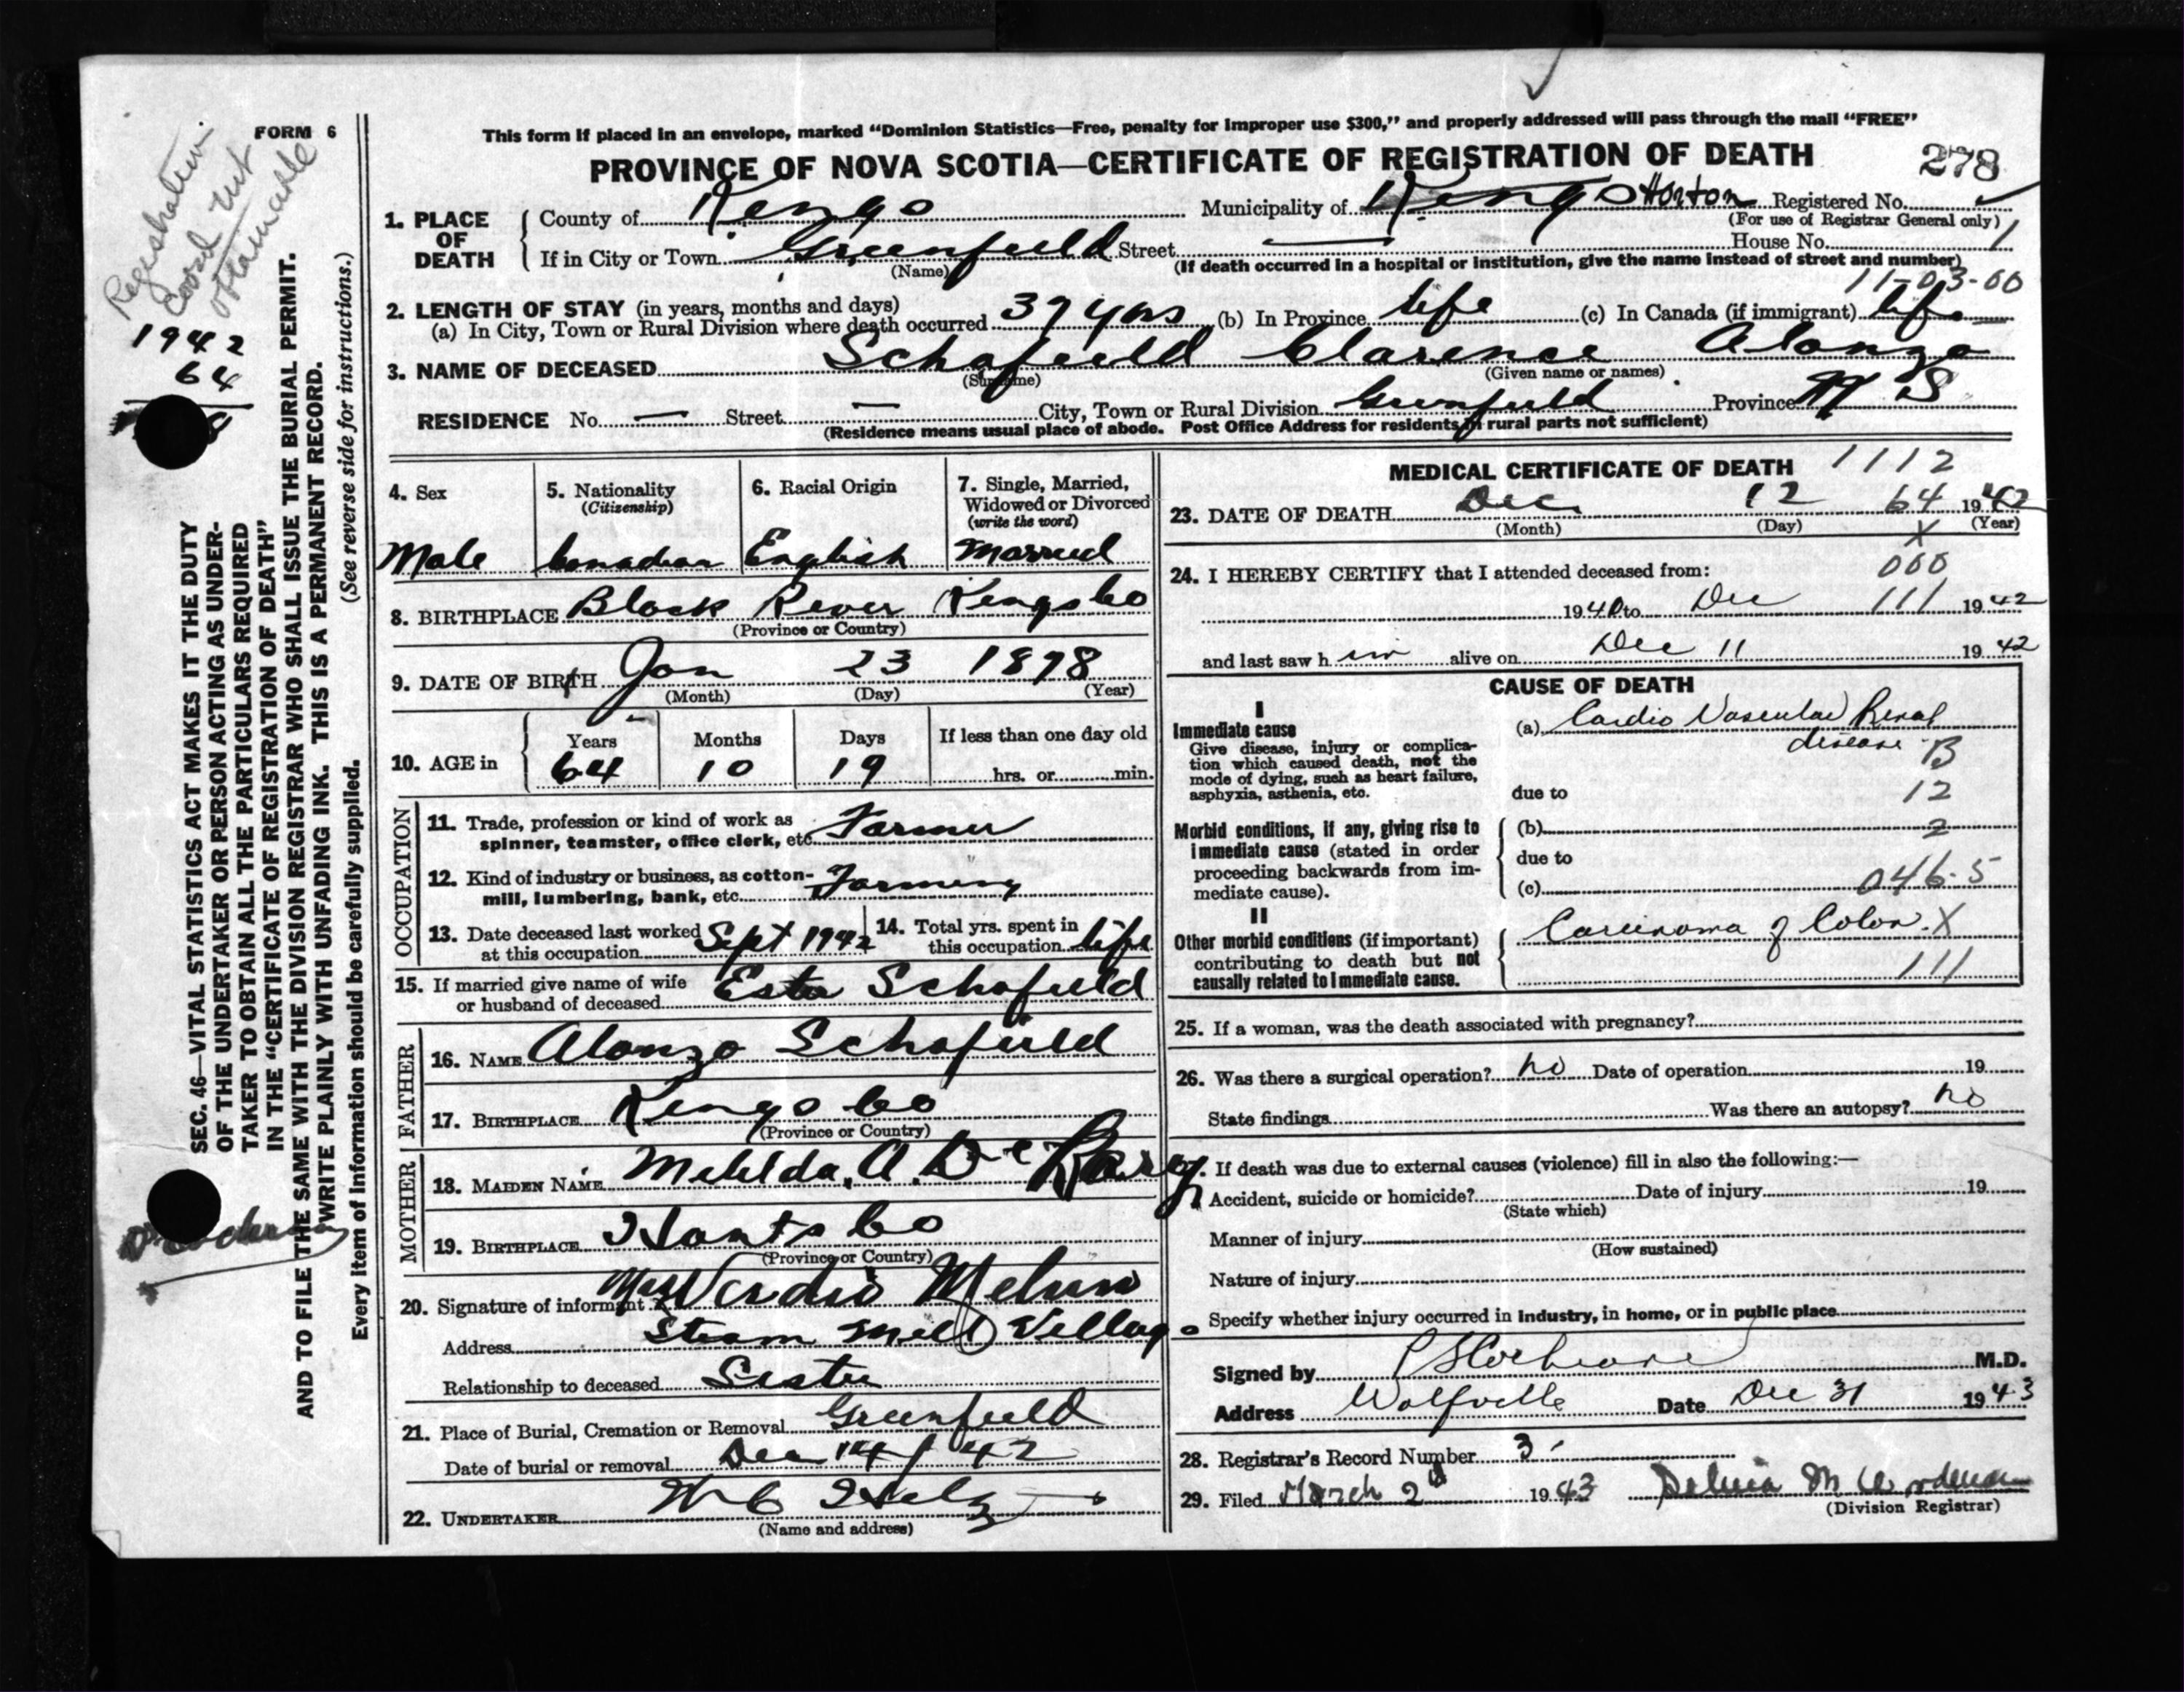 This form if placed in an envelope, marked “Dominion Statistics—Free, penalty for improper use $300,” and properly addressed will pass through the mail “FREE”
FORM 6
PROVINCE OF NOVA SCOTIA—CERTIFICATE OF REGISTRATION OF DEATH
278
Registration
could not
obtainable
1942
64
1. PLACE OF DEATH
County of Kings Municipality of Kings Horton Registered No.
(For use of Registrar General only)
If in City or Town Greenfield Street — House No. 1
(Name) (If death occurred in a hospital or institution, give the name instead of street and number)
11-03-00
2. LENGTH OF STAY (in years, months and days)
(a) In City, Town or Rural Division where death occurred 37 yrs (b) In Province life (c) In Canada (if immigrant) life
3. NAME OF DECEASED Schofield Clarence Alonzo
(Surname) (Given name or names)
RESIDENCE No. — Street — City, Town or Rural Division Greenfield Province N S
(Residence means usual place of abode. Post Office Address for residents in rural parts not sufficient)
4. Sex
Male
5. Nationality
(Citizenship)
Canadian
6. Racial Origin
English
7. Single, Married,
Widowed or Divorced
(write the word)
Married
8. BIRTHPLACE Black River Kings Co
(Province or Country)
9. DATE OF BIRTH Jan 23 1878
(Month) (Day) (Year)
10. AGE in
Years Months Days If less than one day old
64 10 19 hrs. or min.
OCCUPATION
11. Trade, profession or kind of work as
spinner, teamster, office clerk, etc. Farmer
12. Kind of industry or business, as cotton-
mill, lumbering, bank, etc. Farming
13. Date deceased last worked
at this occupation Sept 1942
14. Total yrs. spent in
this occupation life
15. If married give name of wife
or husband of deceased Esta Schofield
FATHER
16. NAME Alonzo Schofield
17. BIRTHPLACE Kings Co
(Province or Country)
MOTHER
18. MAIDEN NAME A.
19. BIRTHPLACE Hants Co
(Province or Country)
20. Signature of informant Mrs
Address Steam Mill Village
Relationship to deceased Sister
21. Place of Burial, Cremation or Removal Greenfield
Date of burial or removal Dec 14 / 42
22. UNDERTAKER W C
(Name and address)
MEDICAL CERTIFICATE OF DEATH 1112
23. DATE OF DEATH Dec 12 64 1942
(Month) (Day) (Year)
X
24. I HEREBY CERTIFY that I attended deceased from: 000
1940 to Dec 111 1942
and last saw him alive on Dec 11 1942
CAUSE OF DEATH
I
Immediate cause
Give disease, injury or complica-
tion which caused death, not the
mode of dying, such as heart failure,
asphyxia, asthenia, etc.
(a) Cardio Vascular Renal
disease B
due to 12
Morbid conditions, if any, giving rise to
immediate cause (stated in order
proceeding backwards from im-
mediate cause).
(b) 2
due to
(c) 046.5
II
Other morbid conditions (if important)
contributing to death but not
causally related to immediate cause.
Carcinoma of Colon. X
111
25. If a woman, was the death associated with pregnancy?
26. Was there a surgical operation? no Date of operation 19
State findings Was there an autopsy? no
If death was due to external causes (violence) fill in also the following:—
Accident, suicide or homicide? Date of injury 19
(State which)
Manner of injury
(How sustained)
Nature of injury
Specify whether injury occurred in industry, in home, or in public place
Signed by Cochrane M.D.
Address Wolfville Date Dec 31 1943
28. Registrar's Record Number 3
29. Filed March 2d 1943
(Division Registrar)
SEC. 46—VITAL STATISTICS ACT MAKES IT THE DUTY
OF THE UNDERTAKER OR PERSON ACTING AS UNDER-
TAKER TO OBTAIN ALL THE PARTICULARS REQUIRED
IN THE “CERTIFICATE OF REGISTRATION OF DEATH”
AND TO FILE THE SAME WITH THE DIVISION REGISTRAR WHO SHALL ISSUE THE BURIAL PERMIT.
WRITE PLAINLY WITH UNFADING INK. THIS IS A PERMANENT RECORD.
Every item of information should be carefully supplied. (See reverse side for instructions.)